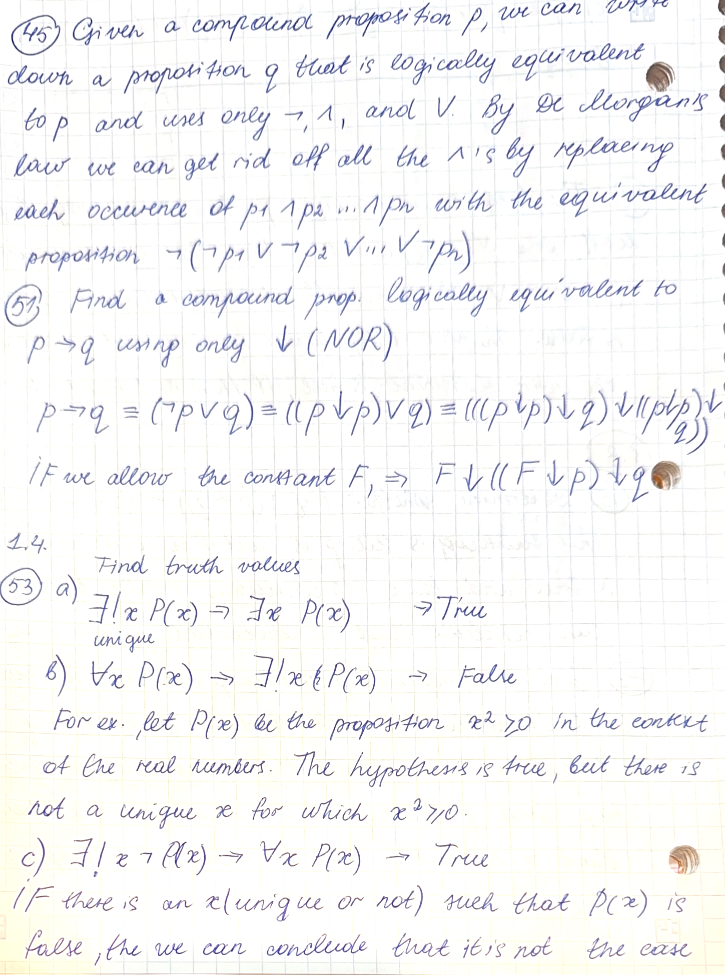 45) Given a compound proposition p, we can write
down a proposition q that is logically equivalent
to p and uses only ¬, ∧, and ∨. By De Morgan's
law we can get rid off all the ∧'s by replacing
each occurence of p1 ∧ p2 ... ∧ pn with the equivalent
proposition ¬(¬p1 ∨ ¬p2 ∨ ... ∨ ¬pn)
51) Find a compound prop. logically equivalent to
p → q using only ↓ (NOR)
p → q ≡ (¬p ∨ q) ≡ ((p ↓ p) ∨ q) ≡ (((p ↓ p) ↓ q) ↓ ((p ↓ p) ↓
q))
if we allow the constant F, ⇒ F ↓ ((F ↓ p) ↓ q
1.4.
Find truth values
53) a)
∃! x P(x) → ∃x P(x) → True
unique
b) ∀x P(x) → ∃! x P(x) → False
For ex. let P(x) be the proposition x² ≥ 0 in the context
of the real numbers. The hypothesis is true, but there is
not a unique x for which x² ≥ 0.
c) ∃! x ¬ P(x) → ∀x P(x) → True
if there is an x (unique or not) such that P(x) is
false, the we can conclude that it is not the case